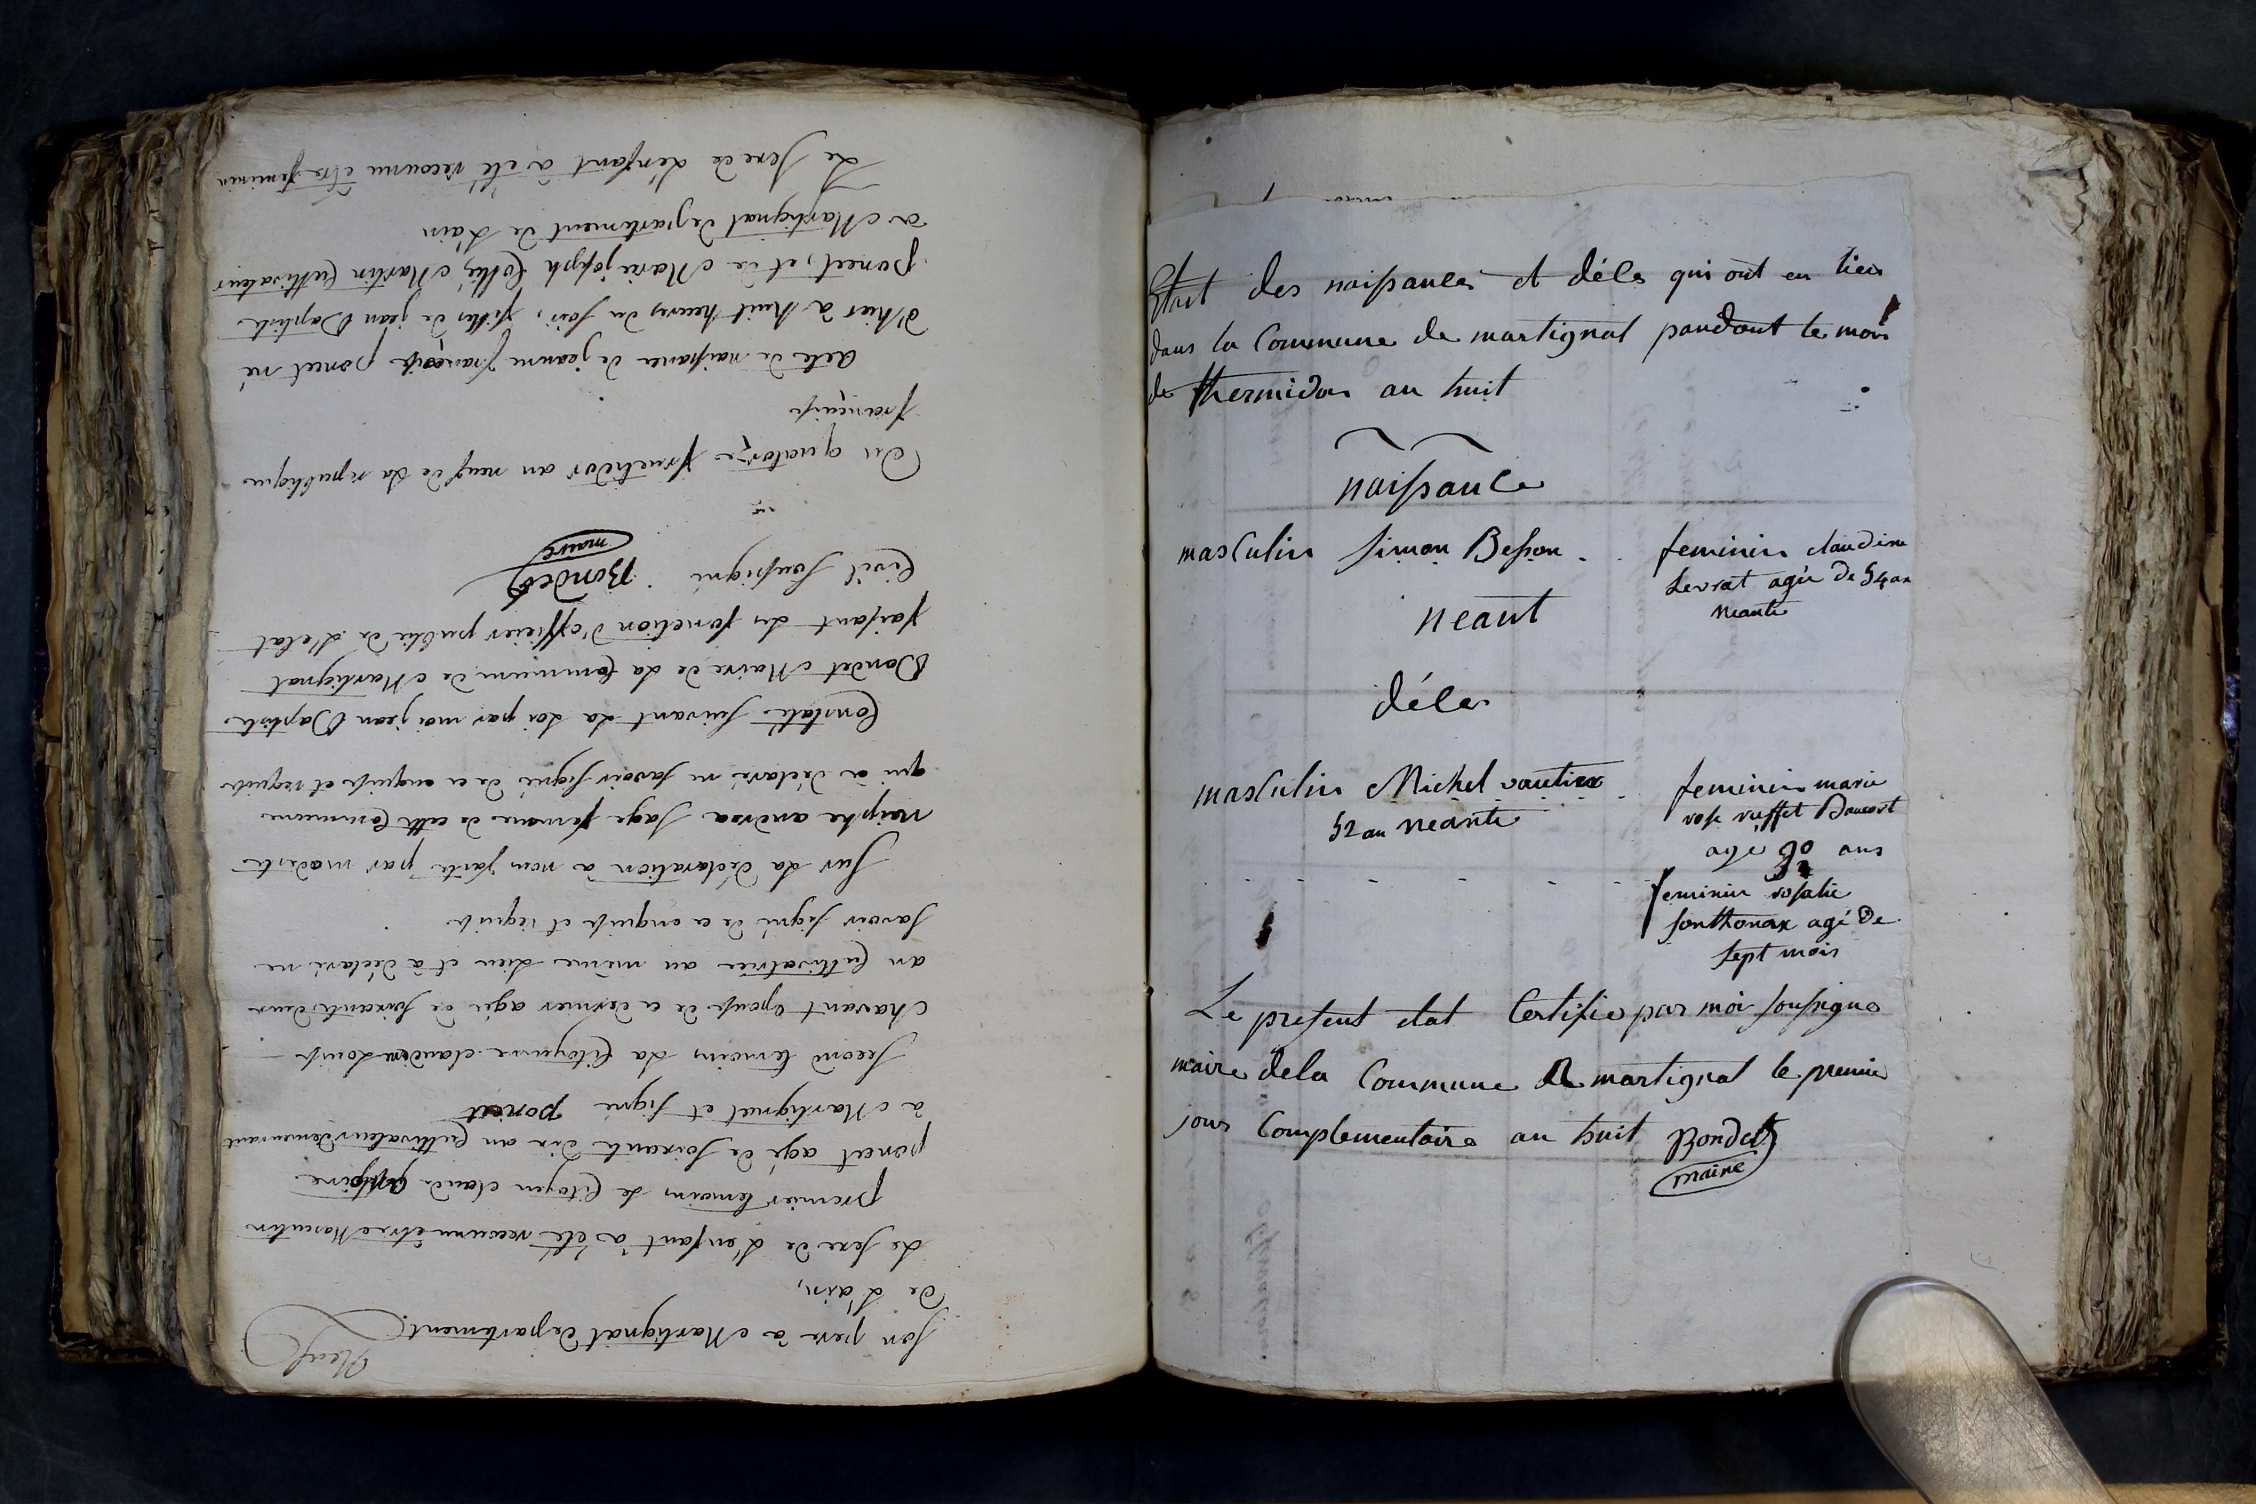 Neuf
son pere à Martignat departement
de L'ain,
Le sexe de L'enfant à été reconnu être Masculin
premier temoins Le Citoyen claude
poncet agé de soixante dix an Cultivateur demeurant
à Martignat et signé poncet
second temoins La Citoyenne claudine Louise
chavant Epouse de ce dernier agée de soixante deux
an Cultivatrice au même Lieu et à déclaré ne
savoir signé de ce enquise et requise
sur La déclaration à nous faite par modeste
andréa sage femme de cette Commune
qui à déclaré ne savoir signé de ce enquise et requise
Constaté suivant La Loi par moi jean Baptiste
Bondet Maire de La Commune de Martignat
faisant les fonction d'officier public de L'etat
Civil soussigné Bondet
maire
Du quatorze fructidor an neuf de La republique
françaises
acte de naissance de jeanne françoise poncet né
d'hier à huit heures du soir, filles de jean Baptiste
poncet, et de Marie joseph Martin Cultivateur
a Martignat departement de L'ain
Le sexe de L'enfant à été reconnu être feminin
Etat des naissances et déces qui ont eu lieu
dans la Commune de martignat pandant le mois
de thermidor an huit
naissance
masculin simon Besson feminin claudine
Levrat agée de 54 an
neant neante
déces
masculin Michel vautier feminin marie
52 an neante rose ruffet
age 90 ans
feminin rosalie
sonthonax agé de
sept mois
Le present etat Certifie par moi soussigne
maire de la Commune de martignat le premier
jour Complementaire an huit Bondet
maire